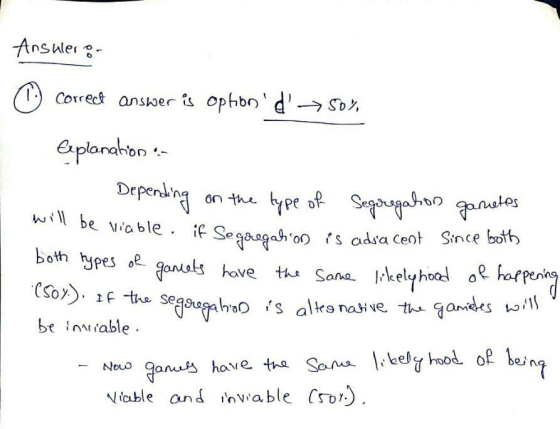 Answer :-
1. correct answer is option 'd' → 50%
Explanation :-
Depending on the type of Segregation gametes
will be viable. if Segregation is adjacent Since both
both types of gamets have the Same likelyhood of happening
(50%). If the segregation is alternative the gametes will
be inviable.
- Now gamets have the Same likely hood of being
Viable and inviable (50%).